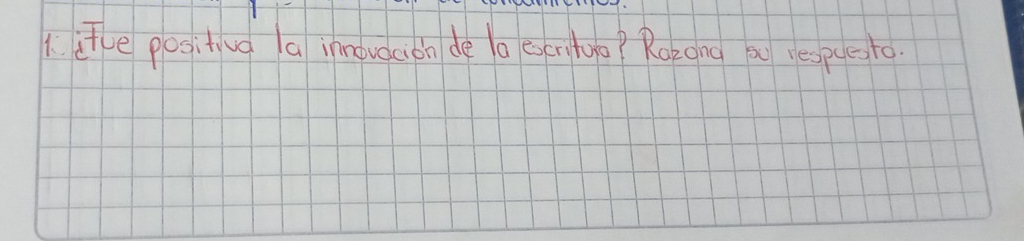 1. ¿Fue positiva la innovación de la escritura? Razona su respuesta.